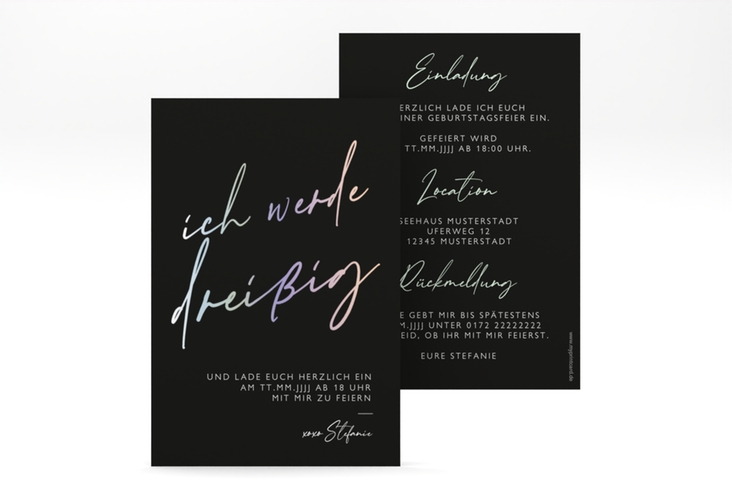 ich werde
dreißig
UND LADE EUCH HERZLICH EIN
AM TT.MM.JJJJ AB 18 UHR
MIT MIR ZU FEIERN
xoxo Stefanie
Einladung
ERZLICH LADE ICH EUCH
INER GEBURTSTAGSFEIER EIN.
GEFEIERT WIRD
TT.MM.JJJJ AB 18:00 UHR.
Location
SEEHAUS MUSTERSTADT
UFERWEG 12
12345 MUSTERSTADT
Rückmeldung
E GEBT MIR BIS SPÄTESTENS
M.JJJJ UNTER 0172 22222222
EID, OB IHR MIT MIR FEIERST.
EURE STEFANIE